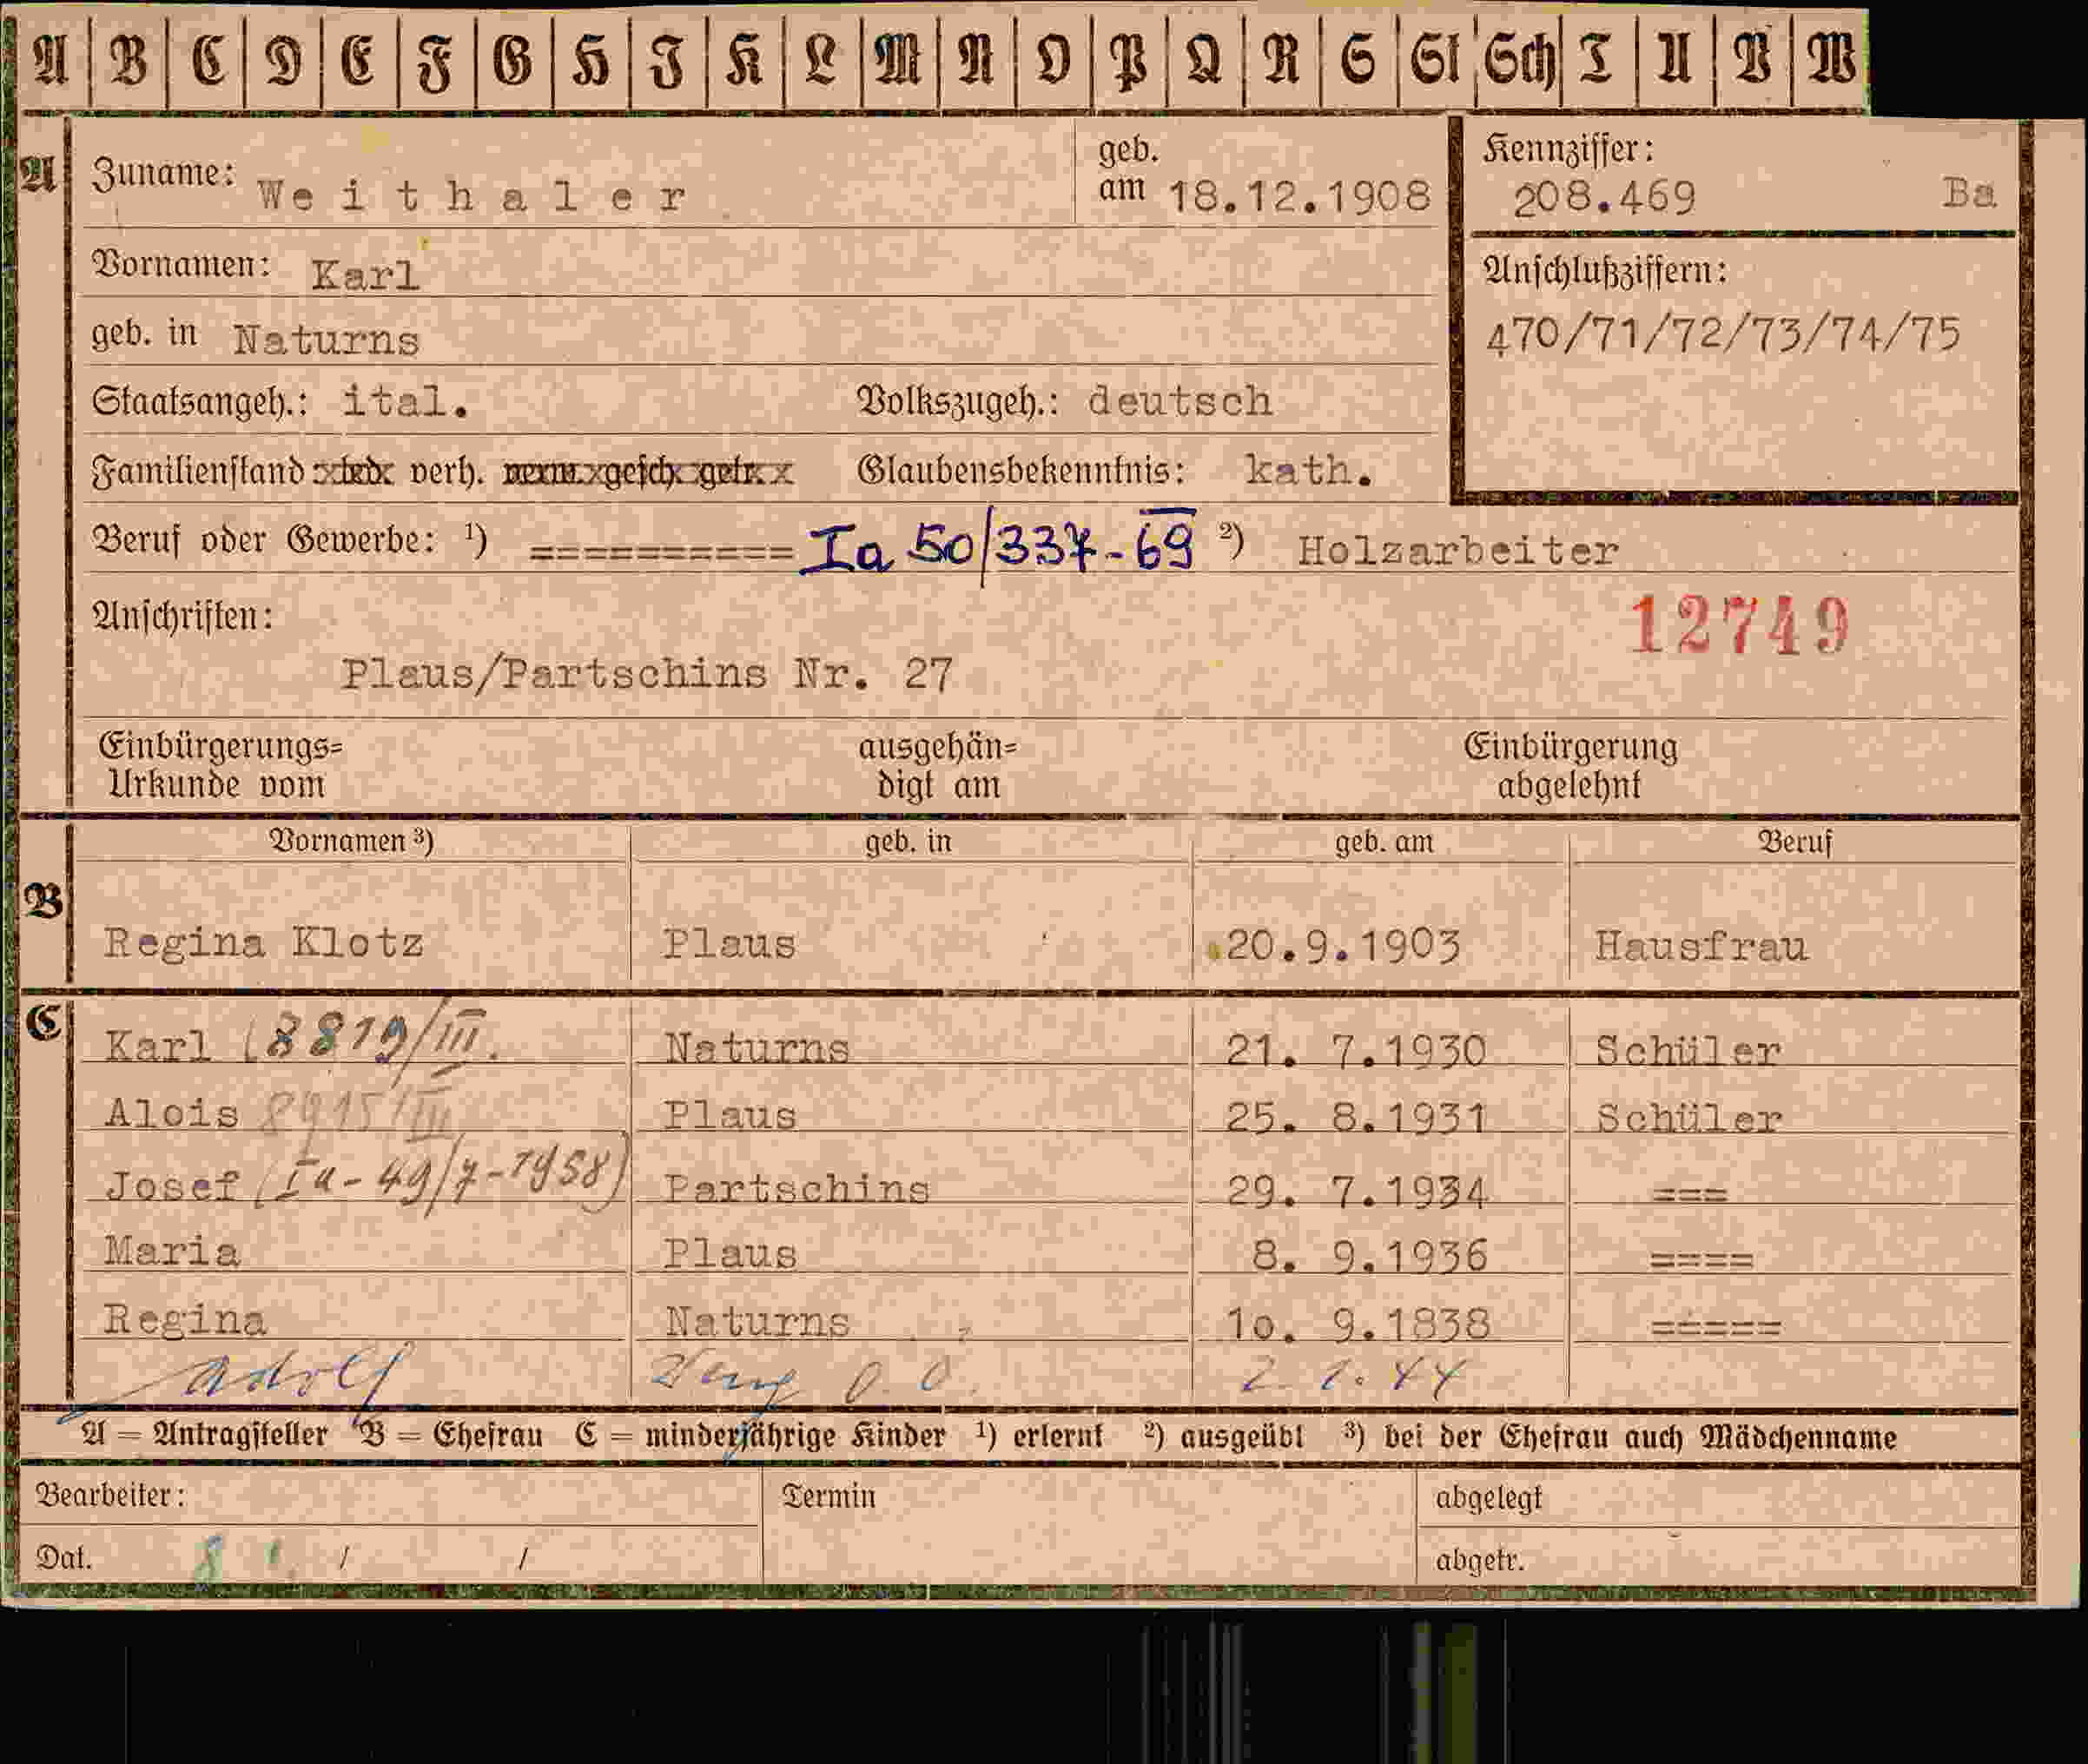 A B C D E F G H I K L M N O P Q R S St Sch T U V W
A Zuname: Weithaler geb. am 18.12.1908 Kennziffer: 208.469 Ba
Vornamen: Karl Anschlußziffern:
geb. in Naturns 470/71/72/73/74/75
Staatsangeh.: ital. Volkszugeh.: deutsch
Familienstand led. verh. verw. gesch. getr. Glaubensbekenntnis: kath.
Beruf oder Gewerbe: ¹) ========== Ia 50/337-69 ²) Holzarbeiter
Anschriften: 12749
Plaus/Partschins Nr. 27
Einbürgerungs= ausgehän= Einbürgerung
Urkunde vom digt am abgelehnt
Vornamen ³) geb. in geb. am Beruf
B Regina Klotz Plaus 20.9.1903 Hausfrau
C Karl (8819/III. Naturns 21. 7.1930 Schüler
Alois 8915/III Plaus 25. 8.1931 Schüler
Josef (Ia-49/7-1958) Partschins 29. 7.1934 ===
Maria Plaus 8. 9.1936 ====
Regina Naturns 1o. 9.1838 =====
Adolf O. D. 44
A = Antragsteller B = Ehefrau C = minderjährige Kinder ¹) erlernt ²) ausgeübt ³) bei der Ehefrau auch Mädchenname
Bearbeiter: Termin abgelegt
Dat. / / abgetr.